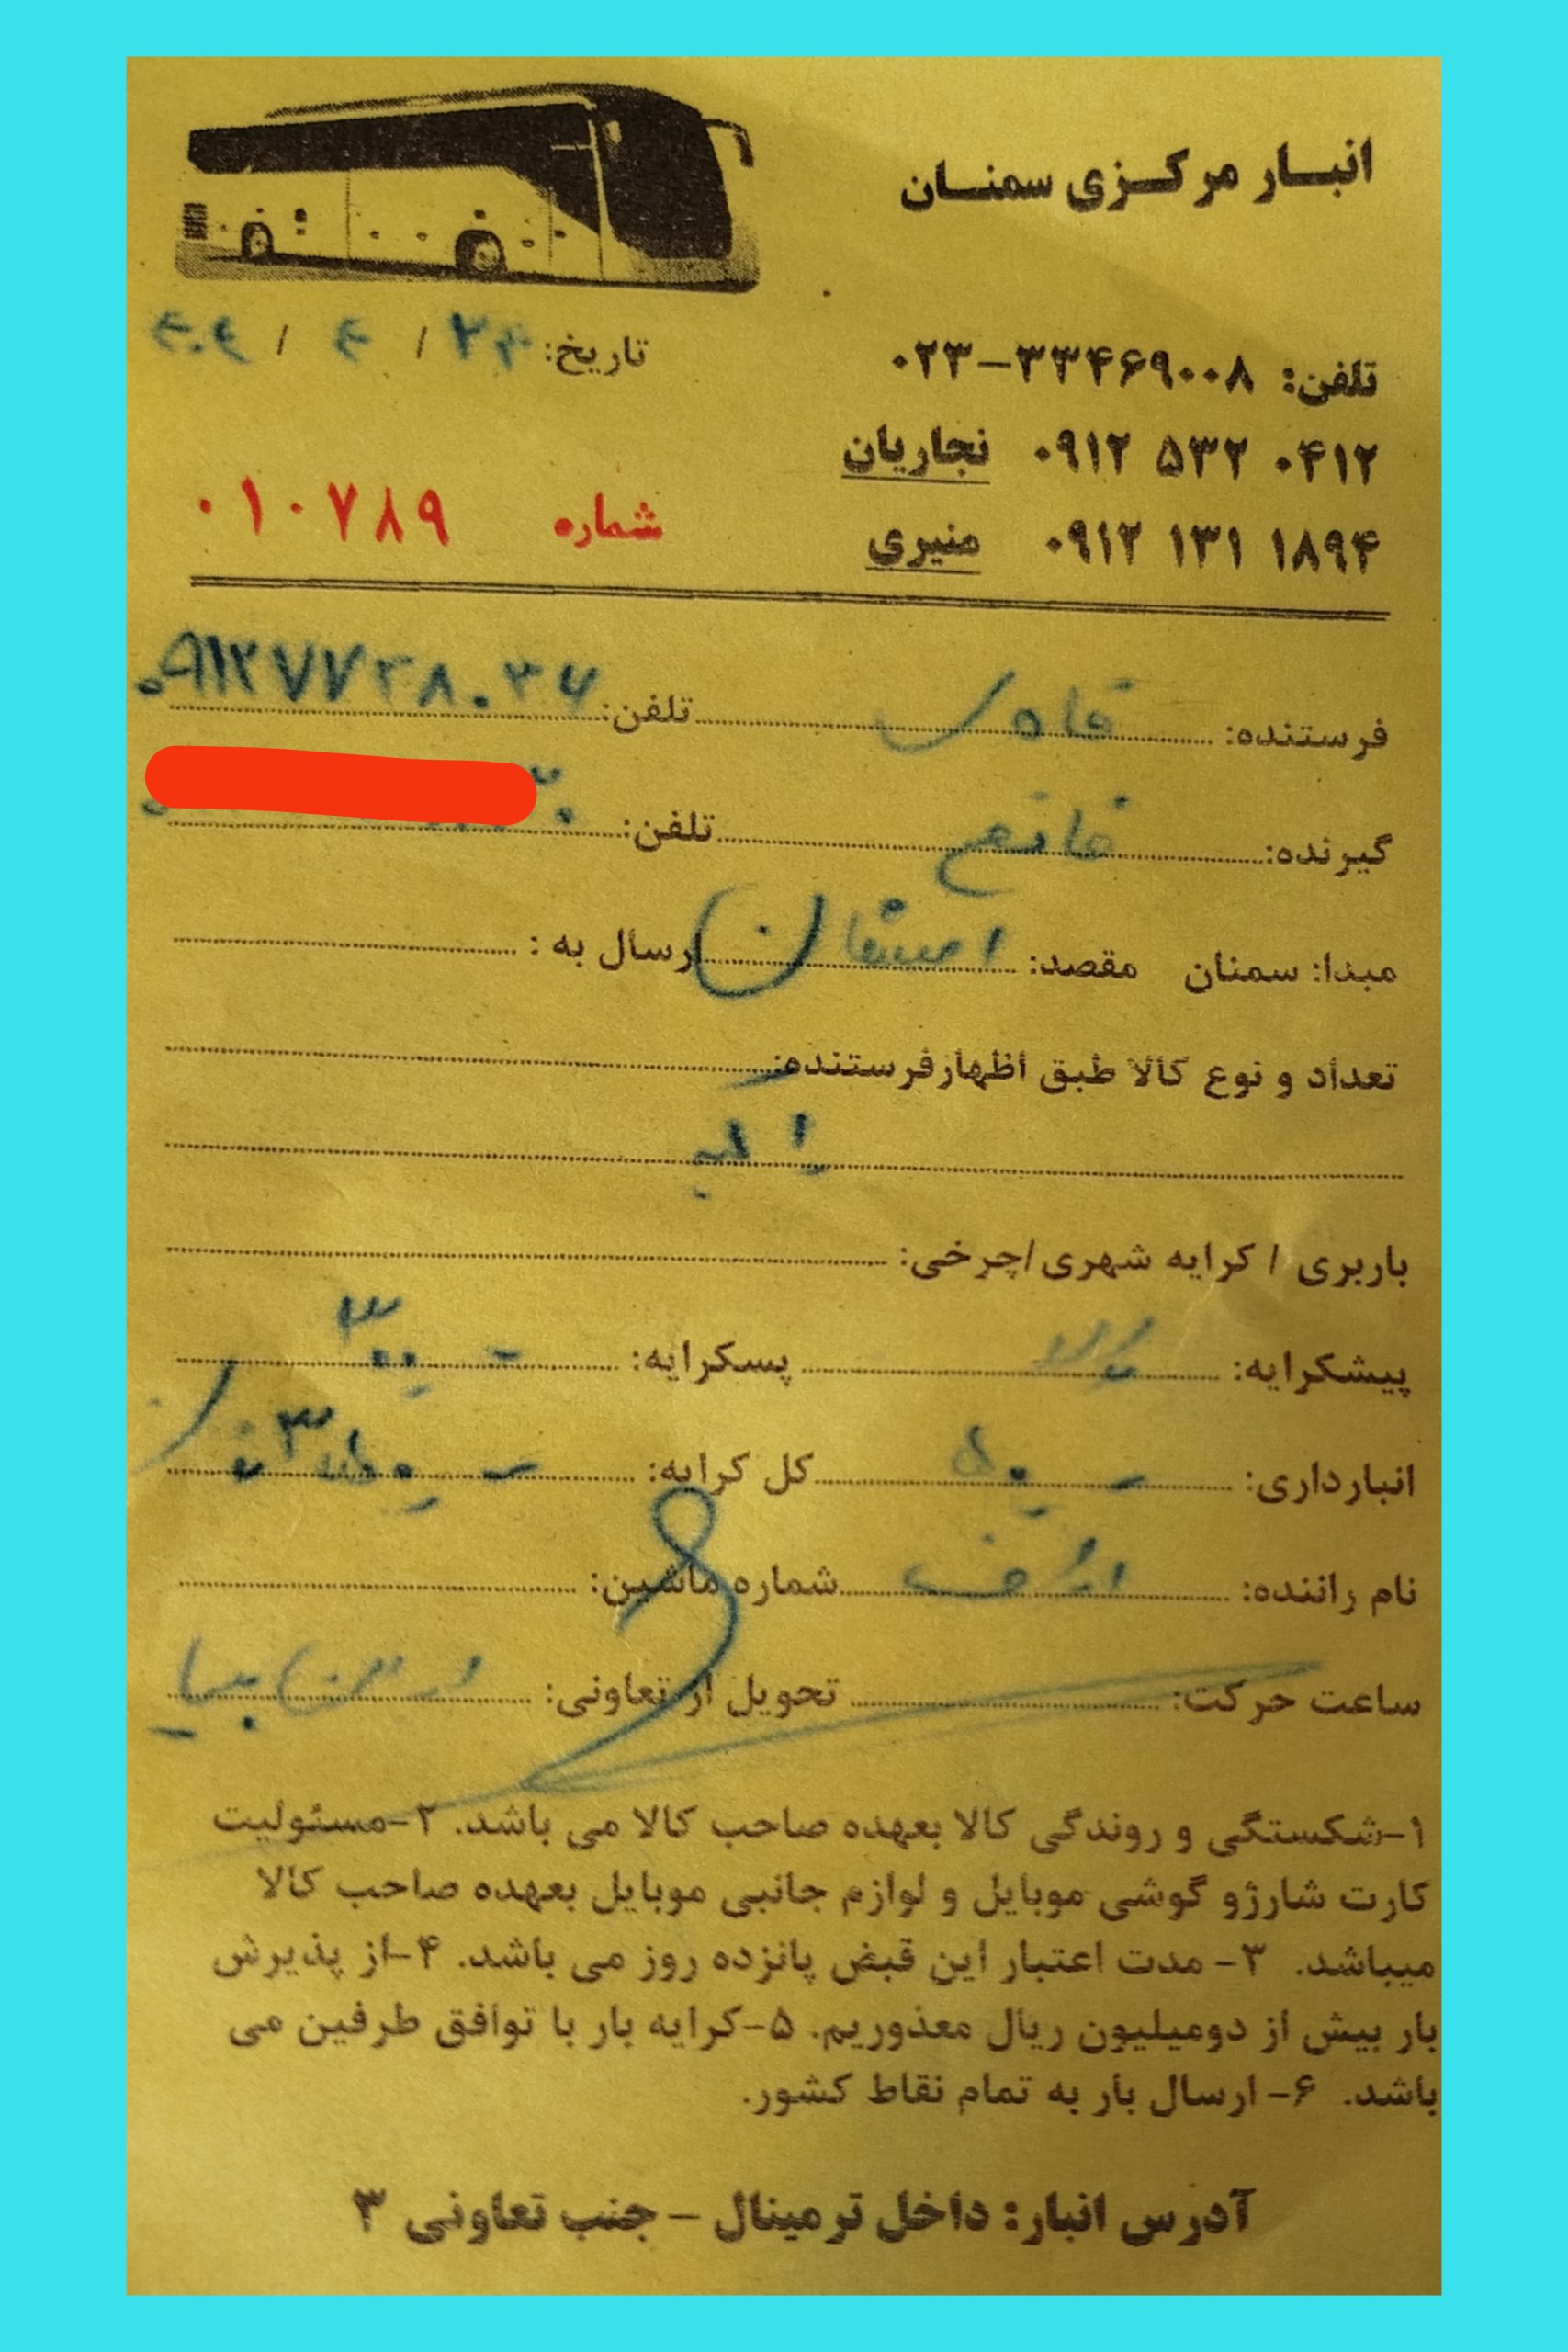 انبار مرکزی سمنان
تلفن: ۰۲۳-۳۳۴۶۹۰۰۸
تاریخ: ۲۳ / ۴ / ۴۰۴
۰۹۱۲ ۵۳۲ ۰۴۱۲ نجاریان
۰۹۱۲ ۱۳۱ ۱۸۹۴ منیری
شماره ۰۱۰۷۸۹
فرستنده: تلفن:
گیرنده: تلفن:
مبدا: سمنان مقصد: اصفهان ارسال به :
تعداد و نوع کالا طبق اظهار فرستنده:
باربری / کرایه شهری/چرخی:
پیشکرایه: پسکرایه: ۳۰۰ -
انبارداری: کل کرایه:
نام راننده: شماره ماشین:
ساعت حرکت: تحویل از تعاونی:
۱-شکستگی و روندگی کالا بعهده صاحب کالا می باشد. ۲-مسئولیت
کارت شارژو گوشی موبایل و لوازم جانبی موبایل بعهده صاحب کالا
میباشد. ۳- مدت اعتبار این قبض پانزده روز می باشد. ۴-از پذیرش
بار بیش از دومیلیون ریال معذوریم. ۵-کرایه بار با توافق طرفین می
باشد. ۶- ارسال بار به تمام نقاط کشور.
آدرس انبار: داخل ترمینال - جنب تعاونی ۳